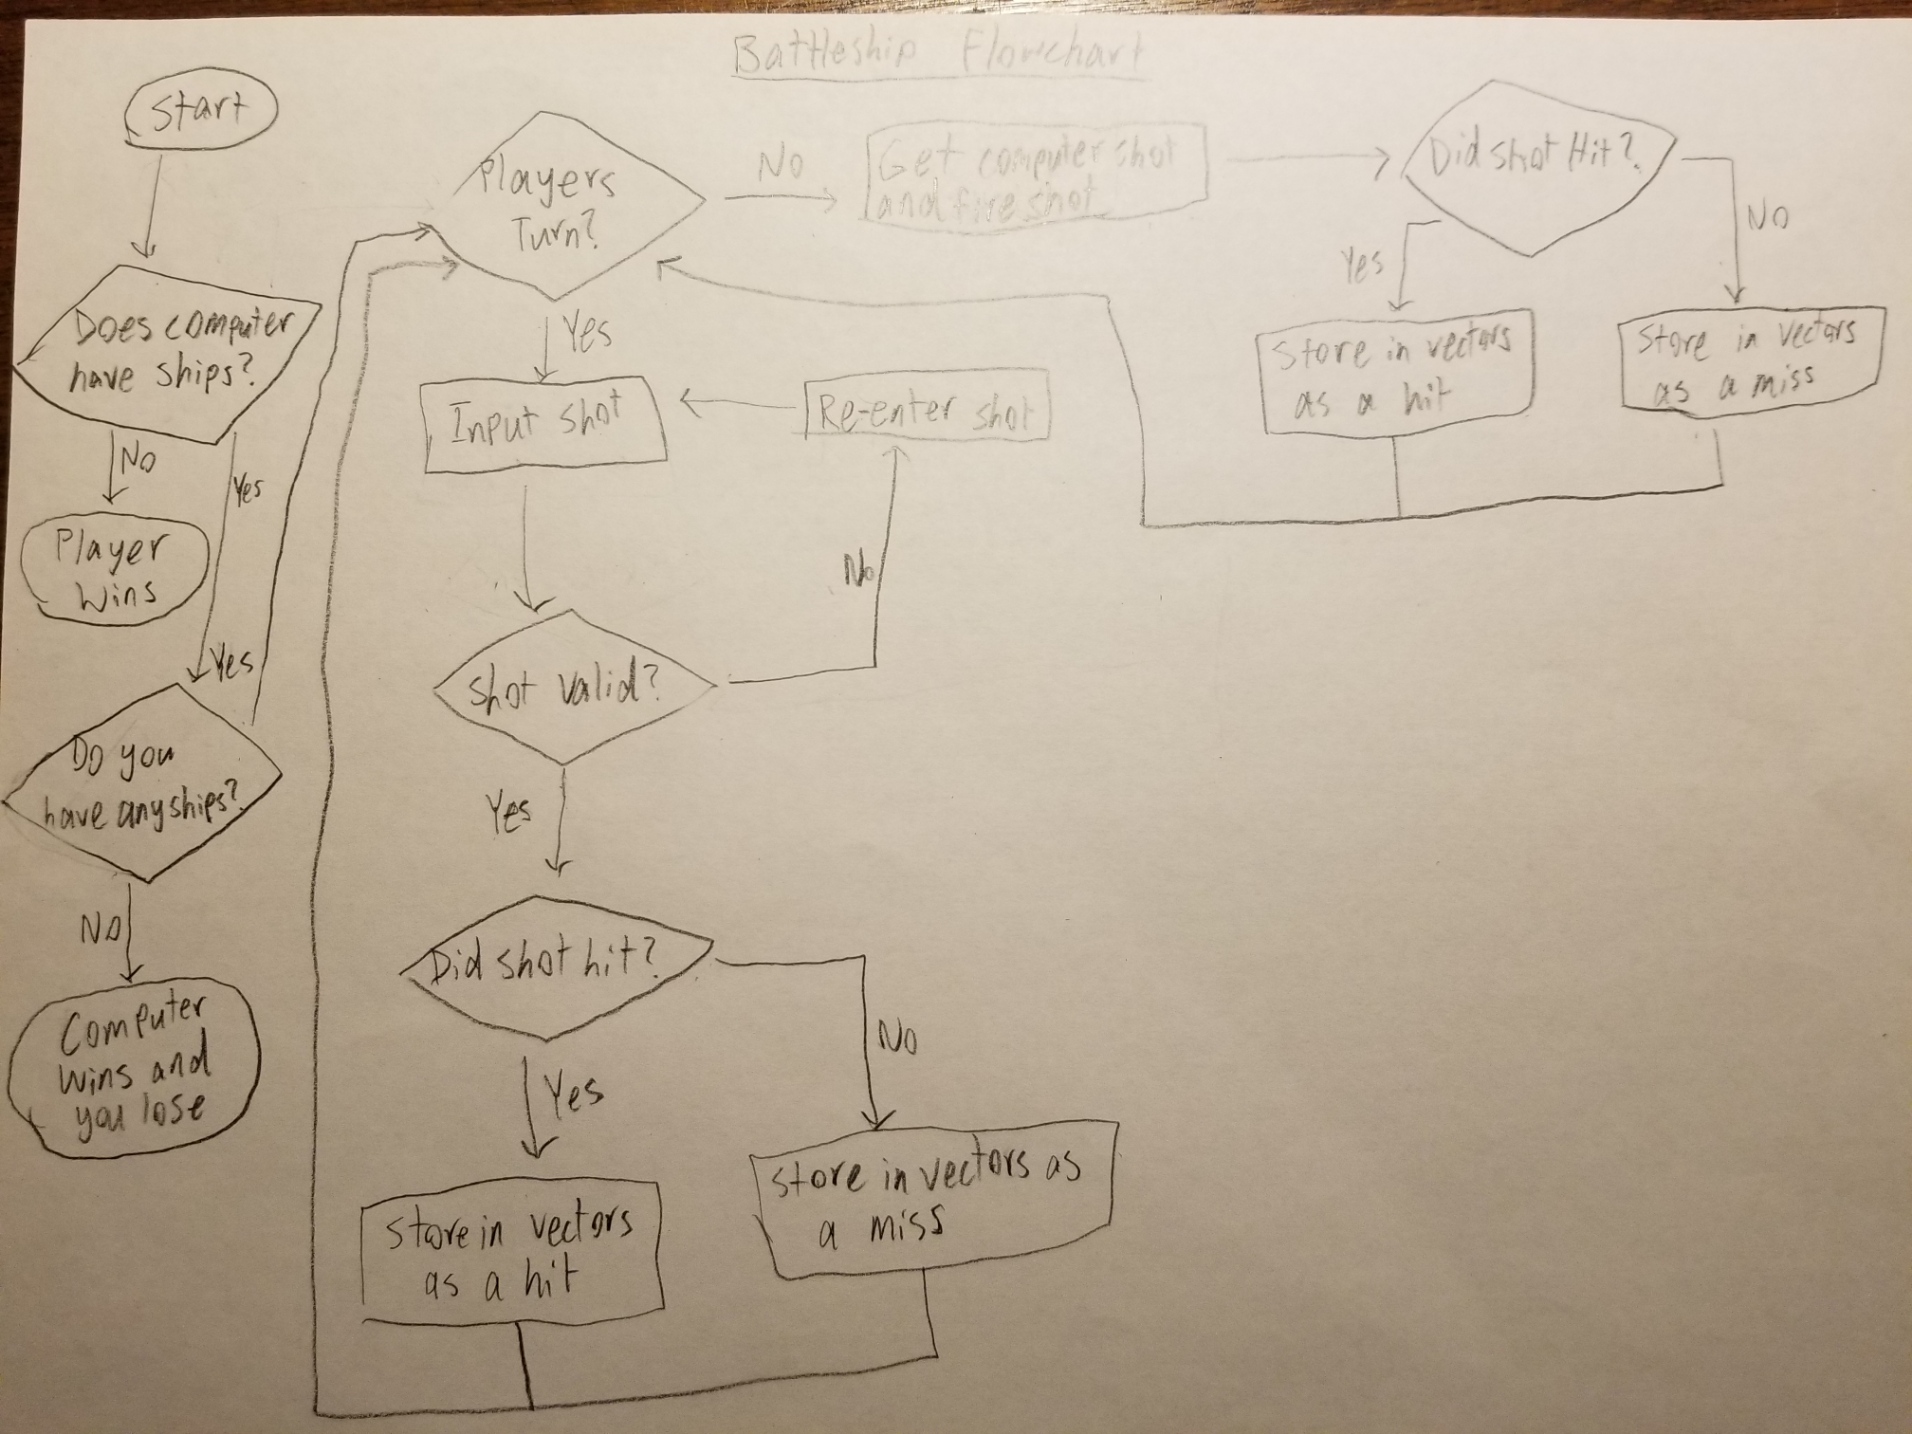 Battleship Flowchart
Start
Does computer
have ships?
No
Yes
Player
Wins
Yes
Do you
have any ships?
No
Computer
wins and
you lose
Players
Turn?
No
Get computer shot
and fire shot
Did shot Hit?
No
Yes
Store in vectors
as a hit
Store in vectors
as a miss
Yes
Input shot
Re-enter shot
No
Shot valid?
Yes
Did shot hit?
No
Yes
Store in vectors
as a hit
Store in vectors as
a miss